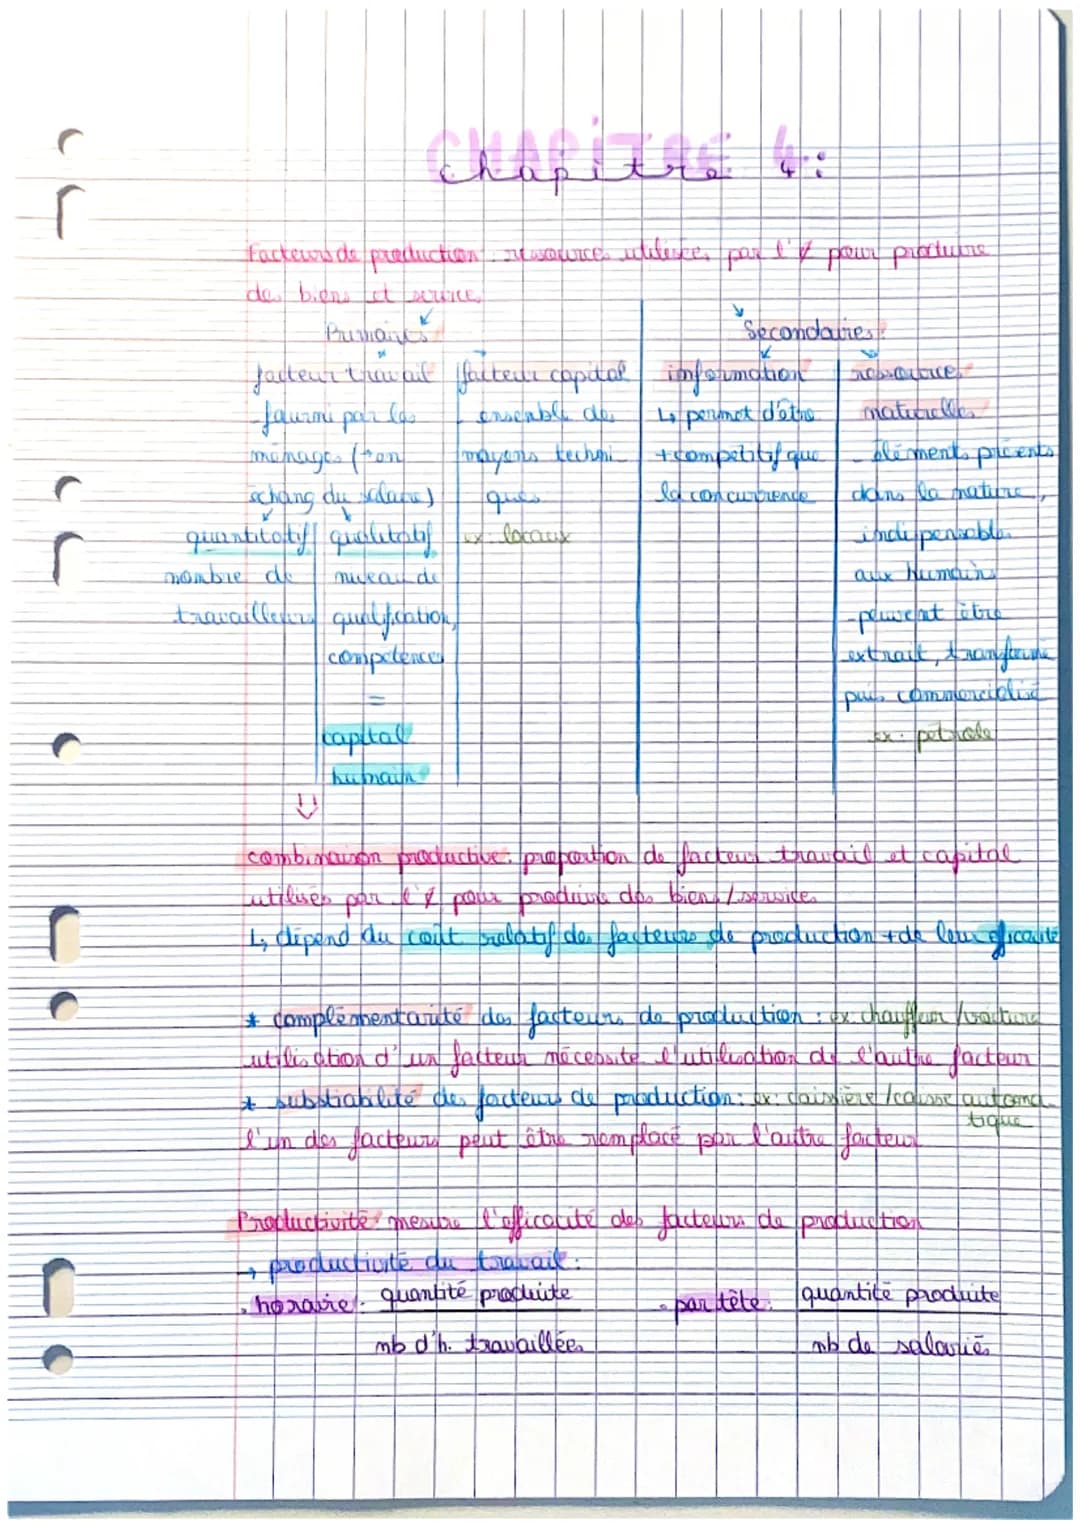 CHAPiTRE 4 :
chapitre
Facteurs de production : ressources utilisées par l'% pour produire
des biens et services
Primaires
Secondaires :
facteur travail
- fourni par les
ménages (+ en
échang du salaire)
quantitatif
nombre de
travailleurs
qualitatif
niveau de
qualification,
compétences
=
capital
humain
facteur capital
- ensemble des
moyens techni
ques
ex : locaux
information
↳ permet d'être
+ compétitif que
la concurrence
ressources
naturelles
- éléments présents
dans la nature,
indispensables
aux humains
- peuvent être
extrait, transformé
puis commercialisé
ex : pétrole
combinaison productive : proportion de facteur travail et capital
utilisés par l'% pour produire des biens / services
↳ dépend du coût relatif des facteurs de production + de leur éficacité
* complémentarité des facteurs de production : ex chauffeur / voiture
utilisation d'un facteur nécessite l'utilisation de l'autre facteur
* substiablité des facteurs de production : ex : caissière / caisse automa
tique
l'un des facteurs peut être remplacé par l'autre facteur
Productivité : mesure l'efficacité des facteurs de production
→ productivité du travail :
. horaire : quantité produite
nb d'h. travaillées
. par tête : quantité produite
nb de salariés